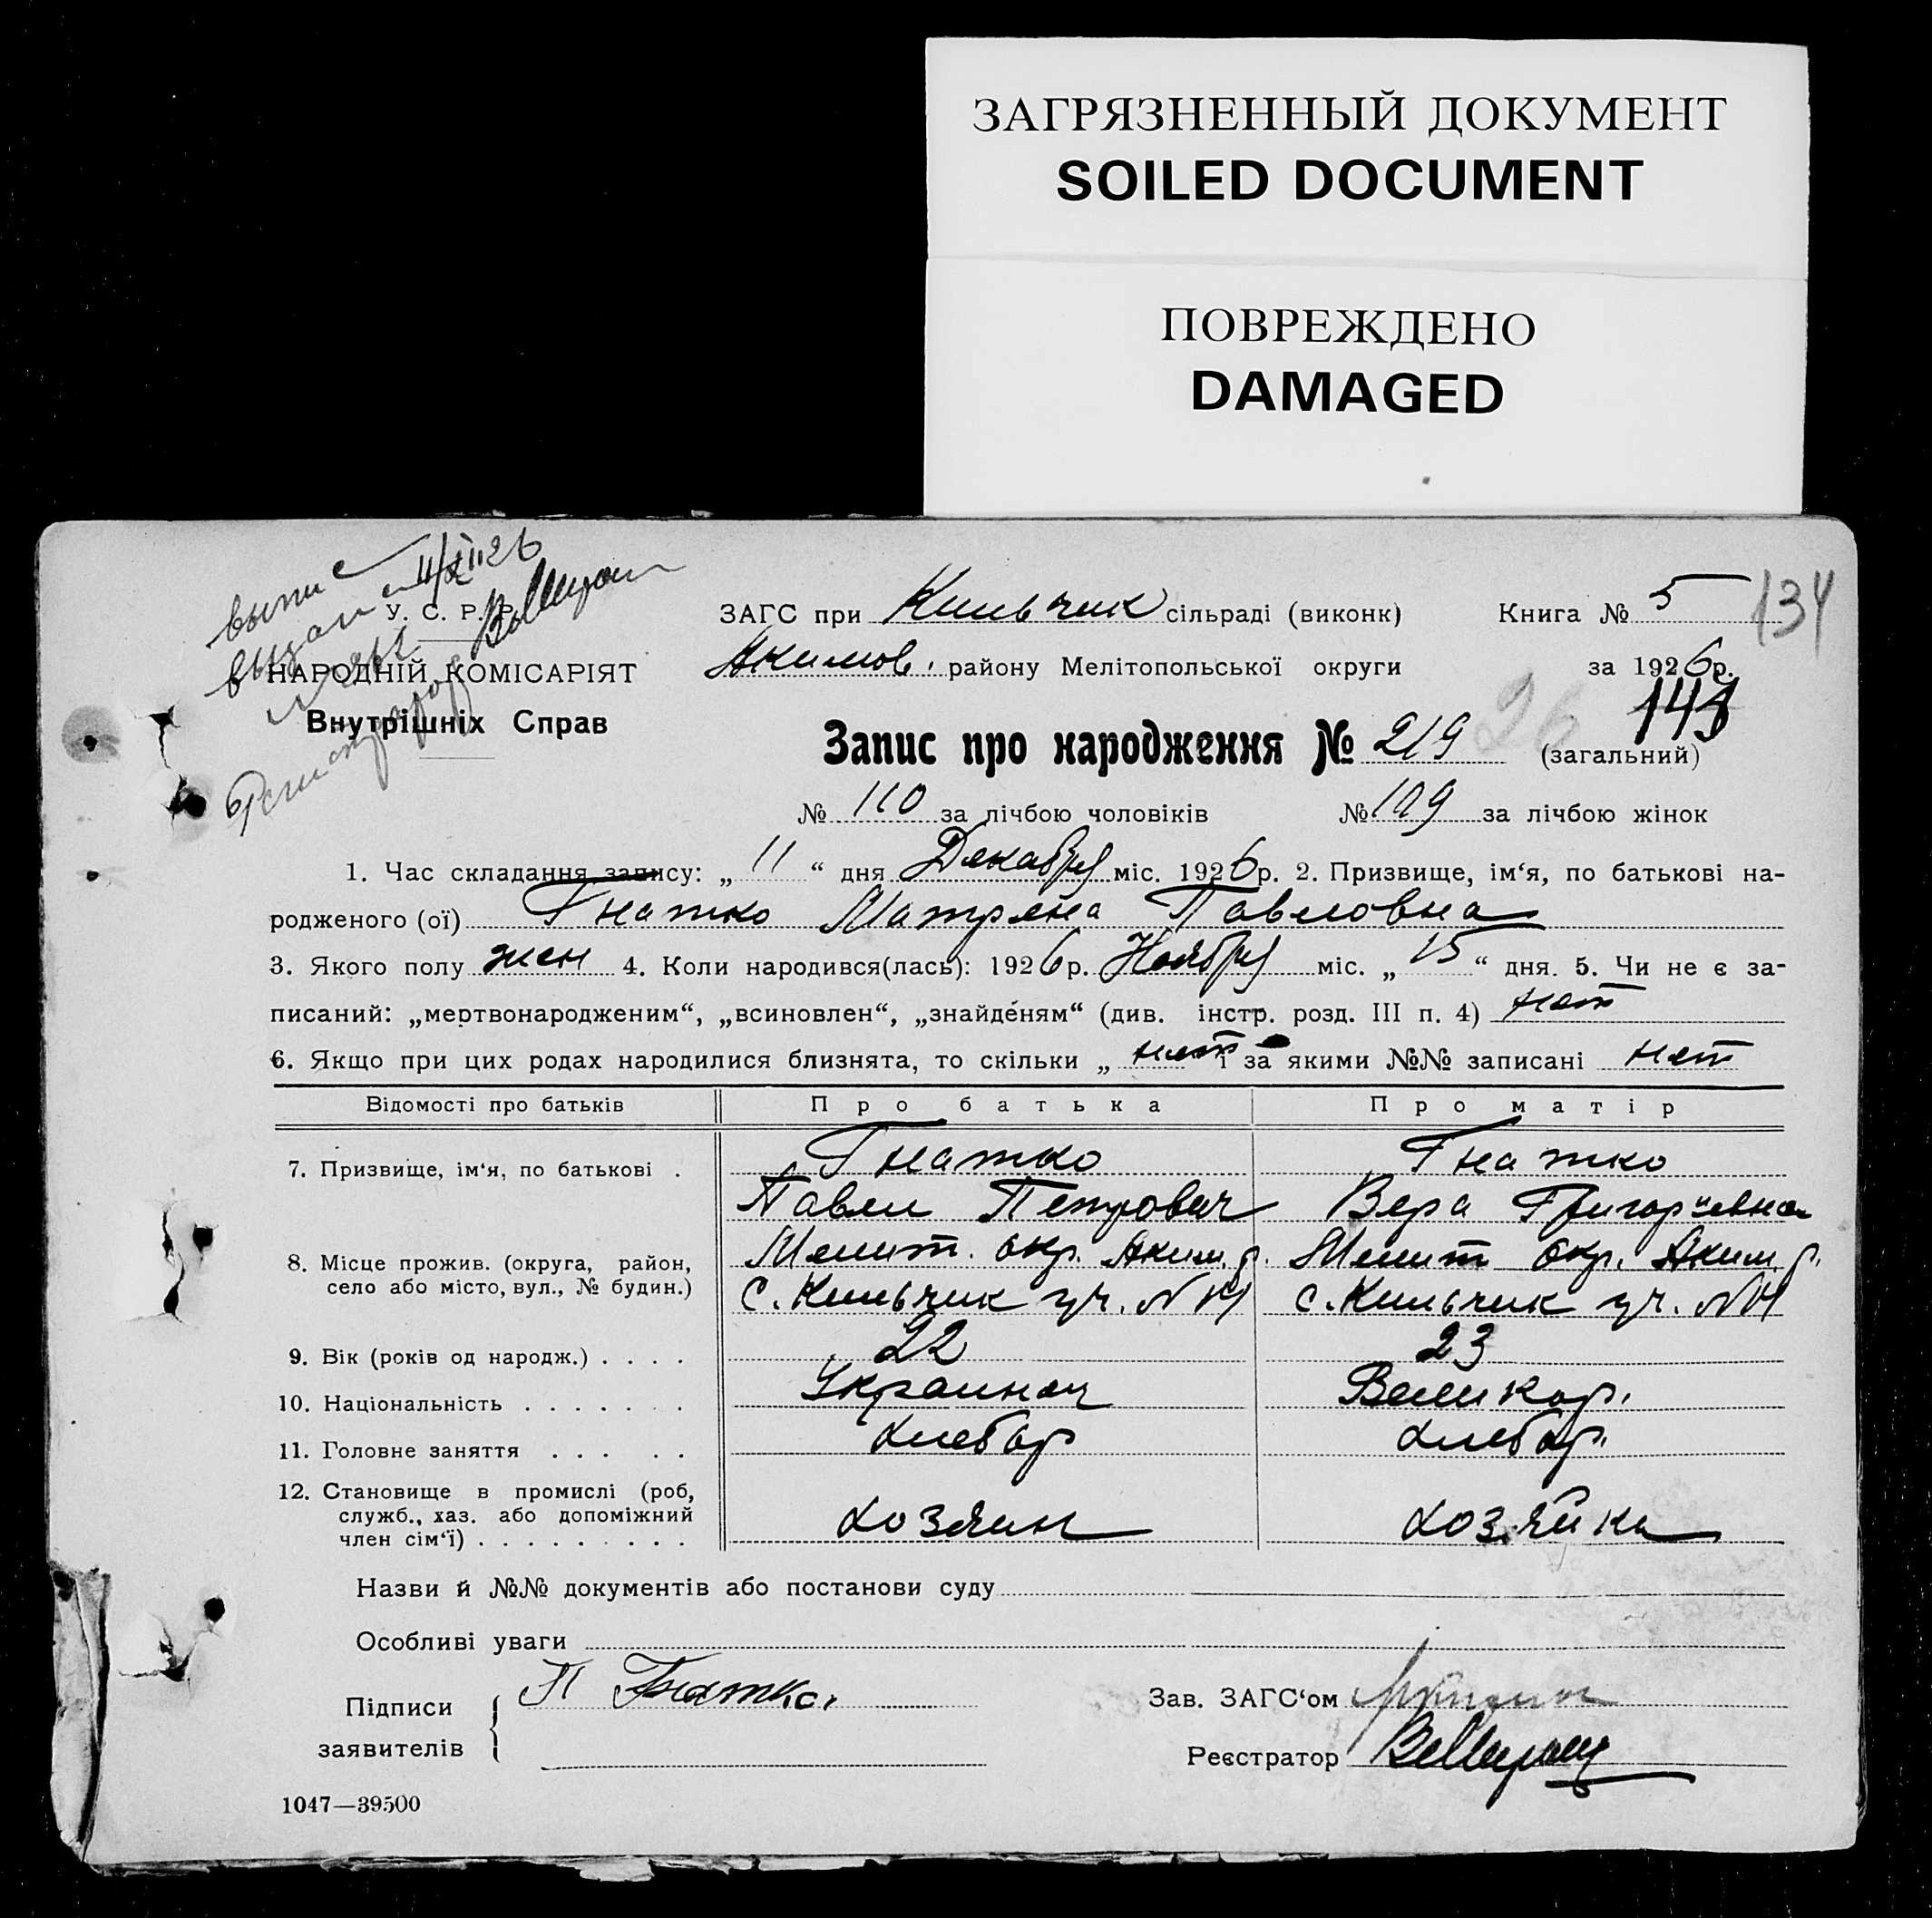 ЗАГРЯЗНЕННЫЙ ДОКУМЕНТ
SOILED DOCUMENT
ПОВРЕЖДЕНО
DAMAGED
11/XII 26
У. С. Р. Р.
НАРОДНІЙ КОМІСАРІЯТ
Внутрішніх Справ
ЗАГС при Кильчик сільраді (виконк) Книга № 5 134
Акимов. району Мелітопольської округи за 1926р.
Запис про народження № 219 26 (загальний)
№ 110 за лічбою чоловіків № 109 за лічбою жінок
1. Час складання запису: „ 11 “ дня Декабря міс. 1926р. 2. Призвище, ім‘я, по батькові на-
родженого (ої) Гнатко Матрена Павловна
3. Якого полу жен 4. Коли народився(лась): 1926р. Ноября міс. „ 15 “ дня. 5. Чи не є за-
писаний: „мертвонародженим“, „всиновлен“, „знайде́ням“ (див. інстр. розд. III п. 4) нет
6. Якщо при цих родах народилися близнята, то скільки „ нет і за якими №№ записані нет
Відомості про батьків Про батька Про матір
7. Призвище, ім‘я, по батькові . Гнатко Гнатко
Павел Петрович Вера Григорьевна
8. Місце прожив. (округа, район, Мелит. окр. Аким. р. Мелит окр. Аким. р.
село або місто, вул., № будин.) с. Кильчик уч. № с. Кильчик уч. №
9. Вік (років од народж.) . . . . 22 23
10. Національність . . . . . . . Украинец Великор.
11. Головне заняття . . . . . хлебор хлебор.
12. Становище в промислі (роб,
служб., хаз. або допоміжний
член сім‘ї) . . . . . . . . . хозяин хозяйка
Назви й №№ документів або постанови суду
Особливі уваги
Підписи
заявителів
П Гнатко
Зав. ЗАГС‘ом
Реєстратор
1047—39500